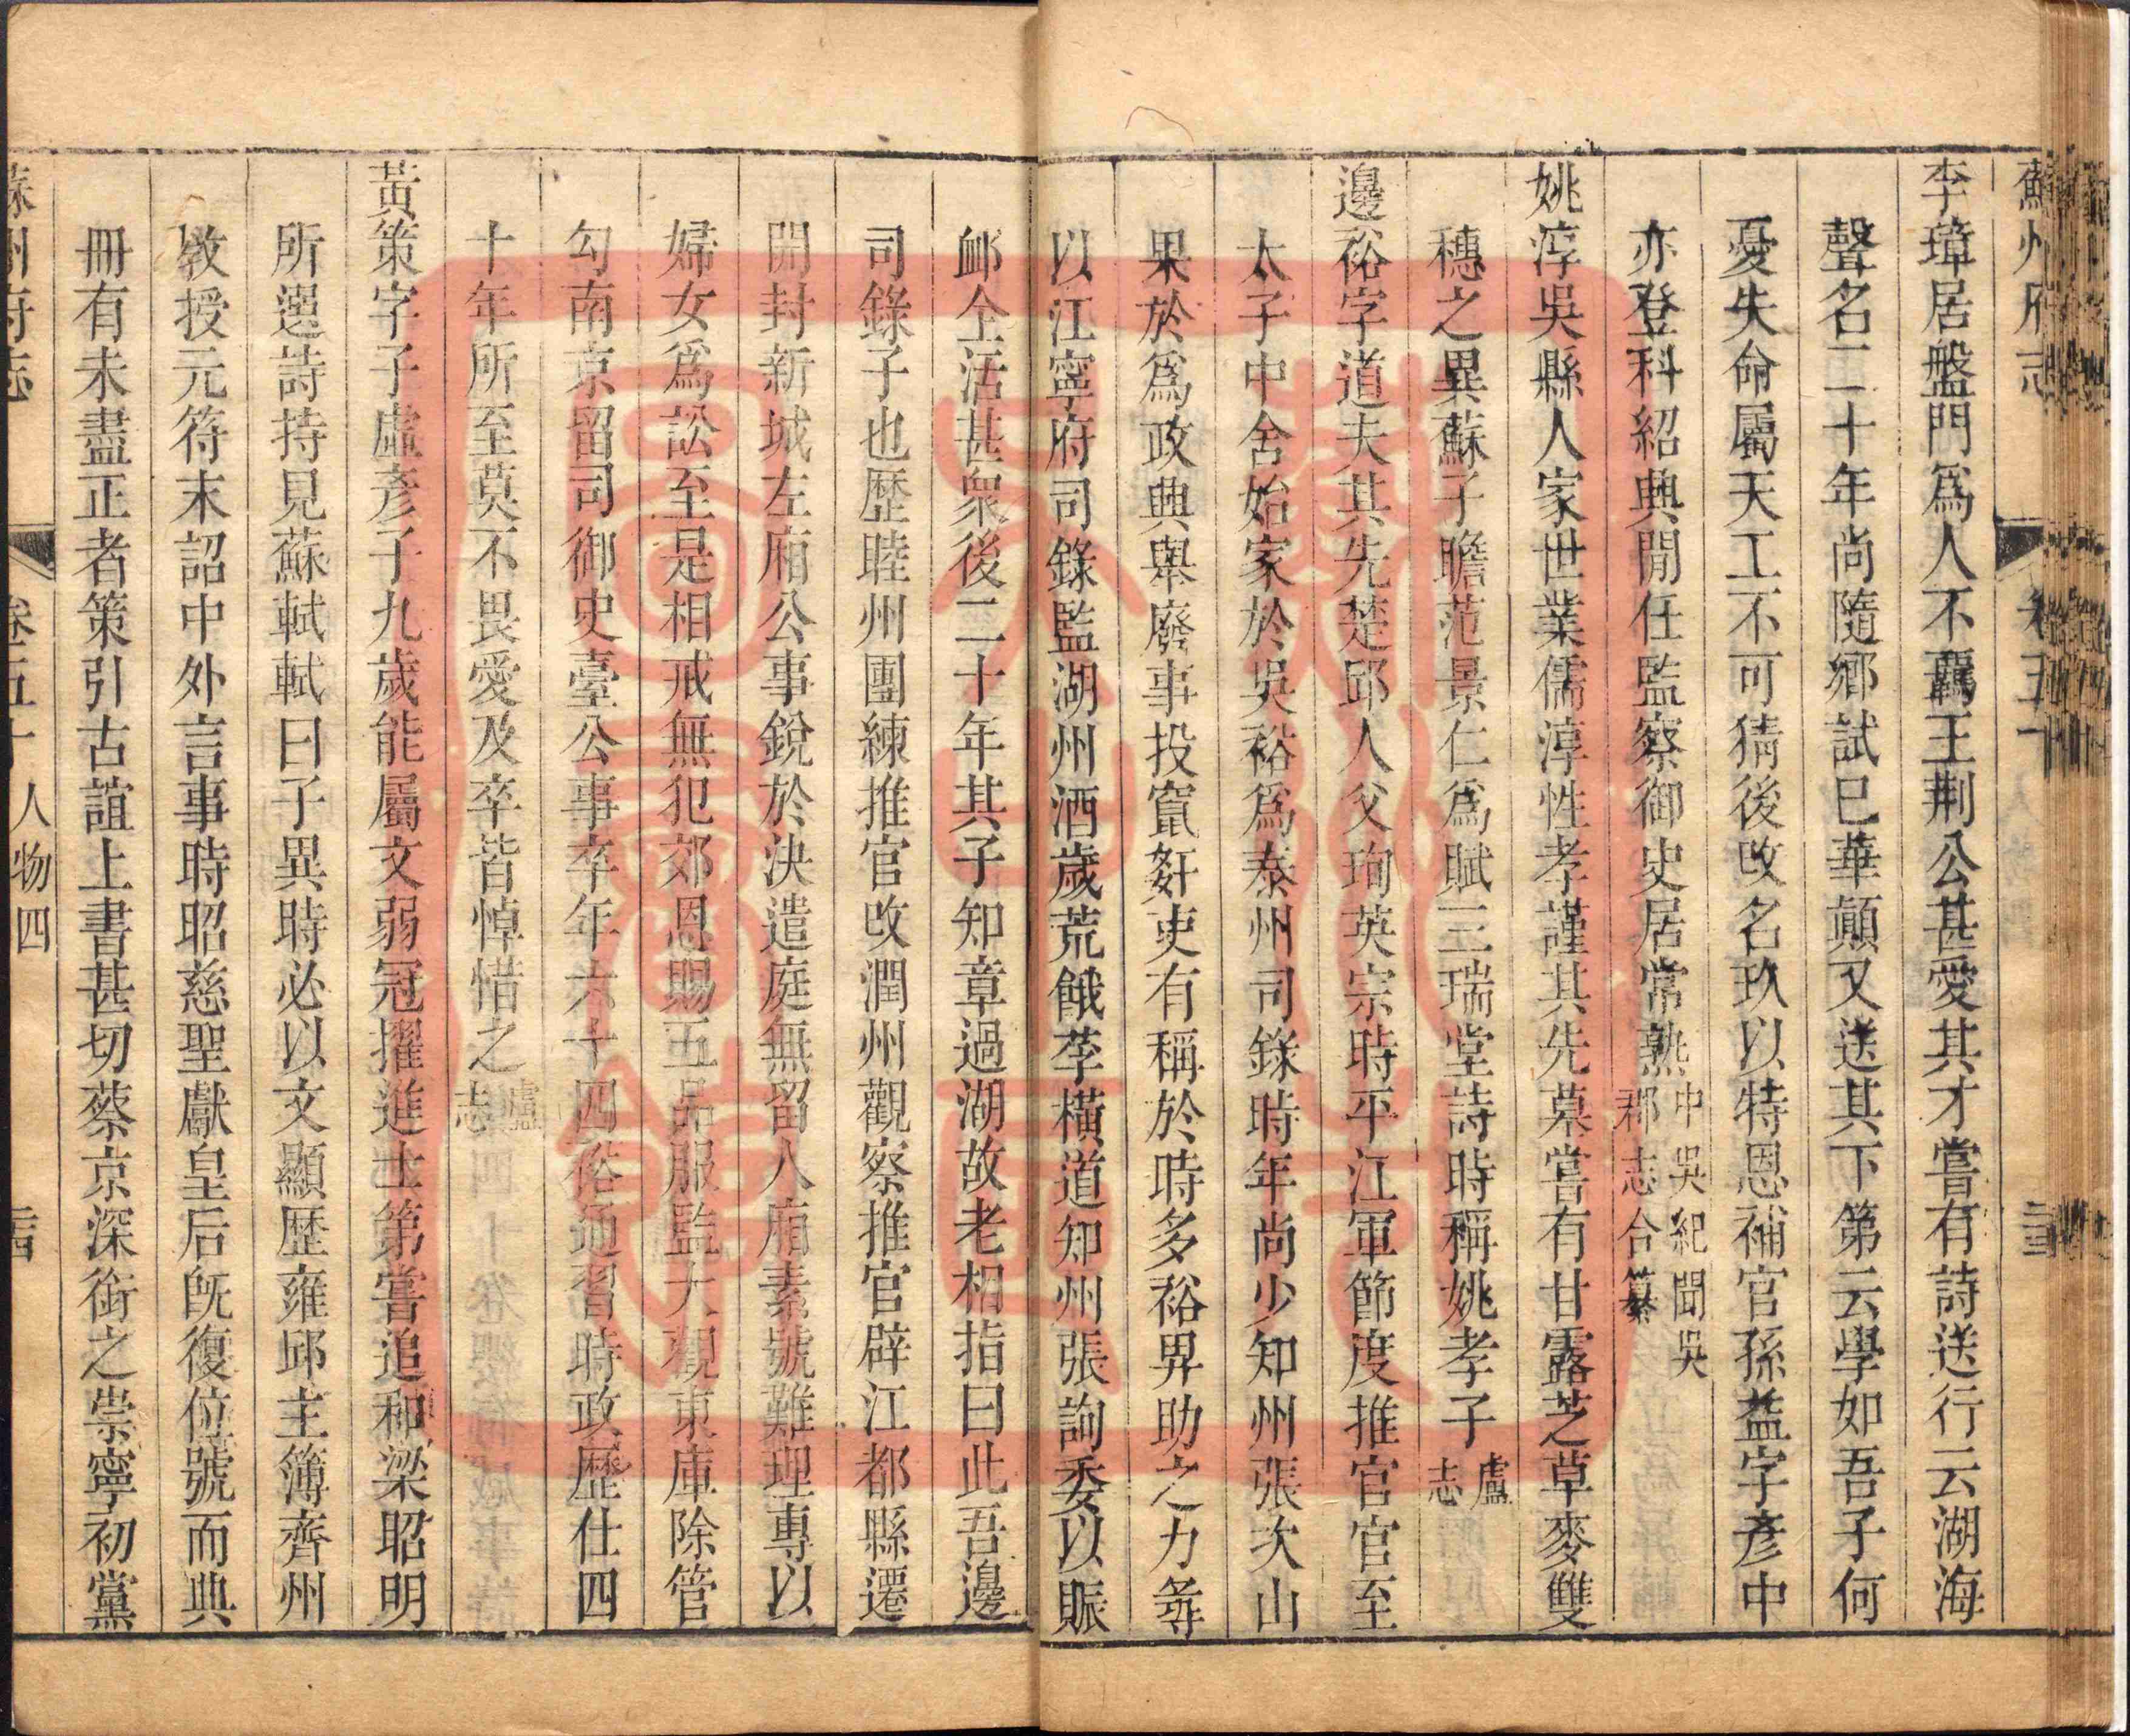 蘇州府志
李璋居盤門爲人不羈王荆公甚愛其才嘗有詩送行云湖海
聲名二十年尚隨鄉試已華顚又送其下第云學如吾子何
憂失命屬天工不可猜後改名玖以特恩補官孫益字彥中
亦登科紹興間任監察御史居常熟中吳紀聞吳
郡志合纂
姚淳吳縣人家世業儒淳性孝謹其先墓嘗有甘露芝草麥雙
穗之異蘇子瞻范景仁爲賦三瑞堂詩時稱姚孝子盧
志
邊裕字道夫其先楚邱人父珣英宗時平江軍節度推官官至
太子中舍始家於吳裕爲泰州司錄時年尚少知州張次山
果於爲政興舉廢事投竄姧吏有稱於時多裕畀助之力尋
以江寧府司錄監湖州酒歲荒餓莩橫道知州張詢委以賑
䘏全活甚衆後二十年其子知章過湖故老相指曰此吾邊
司錄子也歷睦州團練推官改潤州觀察推官辟江都縣遷
開封新城左廂公事銳於決遣庭無留人廂素號難理專以
婦女爲訟至是相戒無犯郊恩賜五品服監大觀東庫除管
勾南京留司御史臺公事卒年六十四裕通習時政歷仕四
十年所至莫不畏愛及卒皆悼惜之盧
志
黃策字子虛彥子九歲能屬文弱冠擢進士第嘗追和梁昭明
所選詩持見蘇軾軾曰子異時必以文顯歷雍邱主簿齊州
敎授元符末詔中外言事時昭慈聖獻皇后旣復位號而典
冊有未盡正者策引古誼上書甚切蔡京深銜之崇寧初黨
蘇州府志 卷五十 人物四 二四